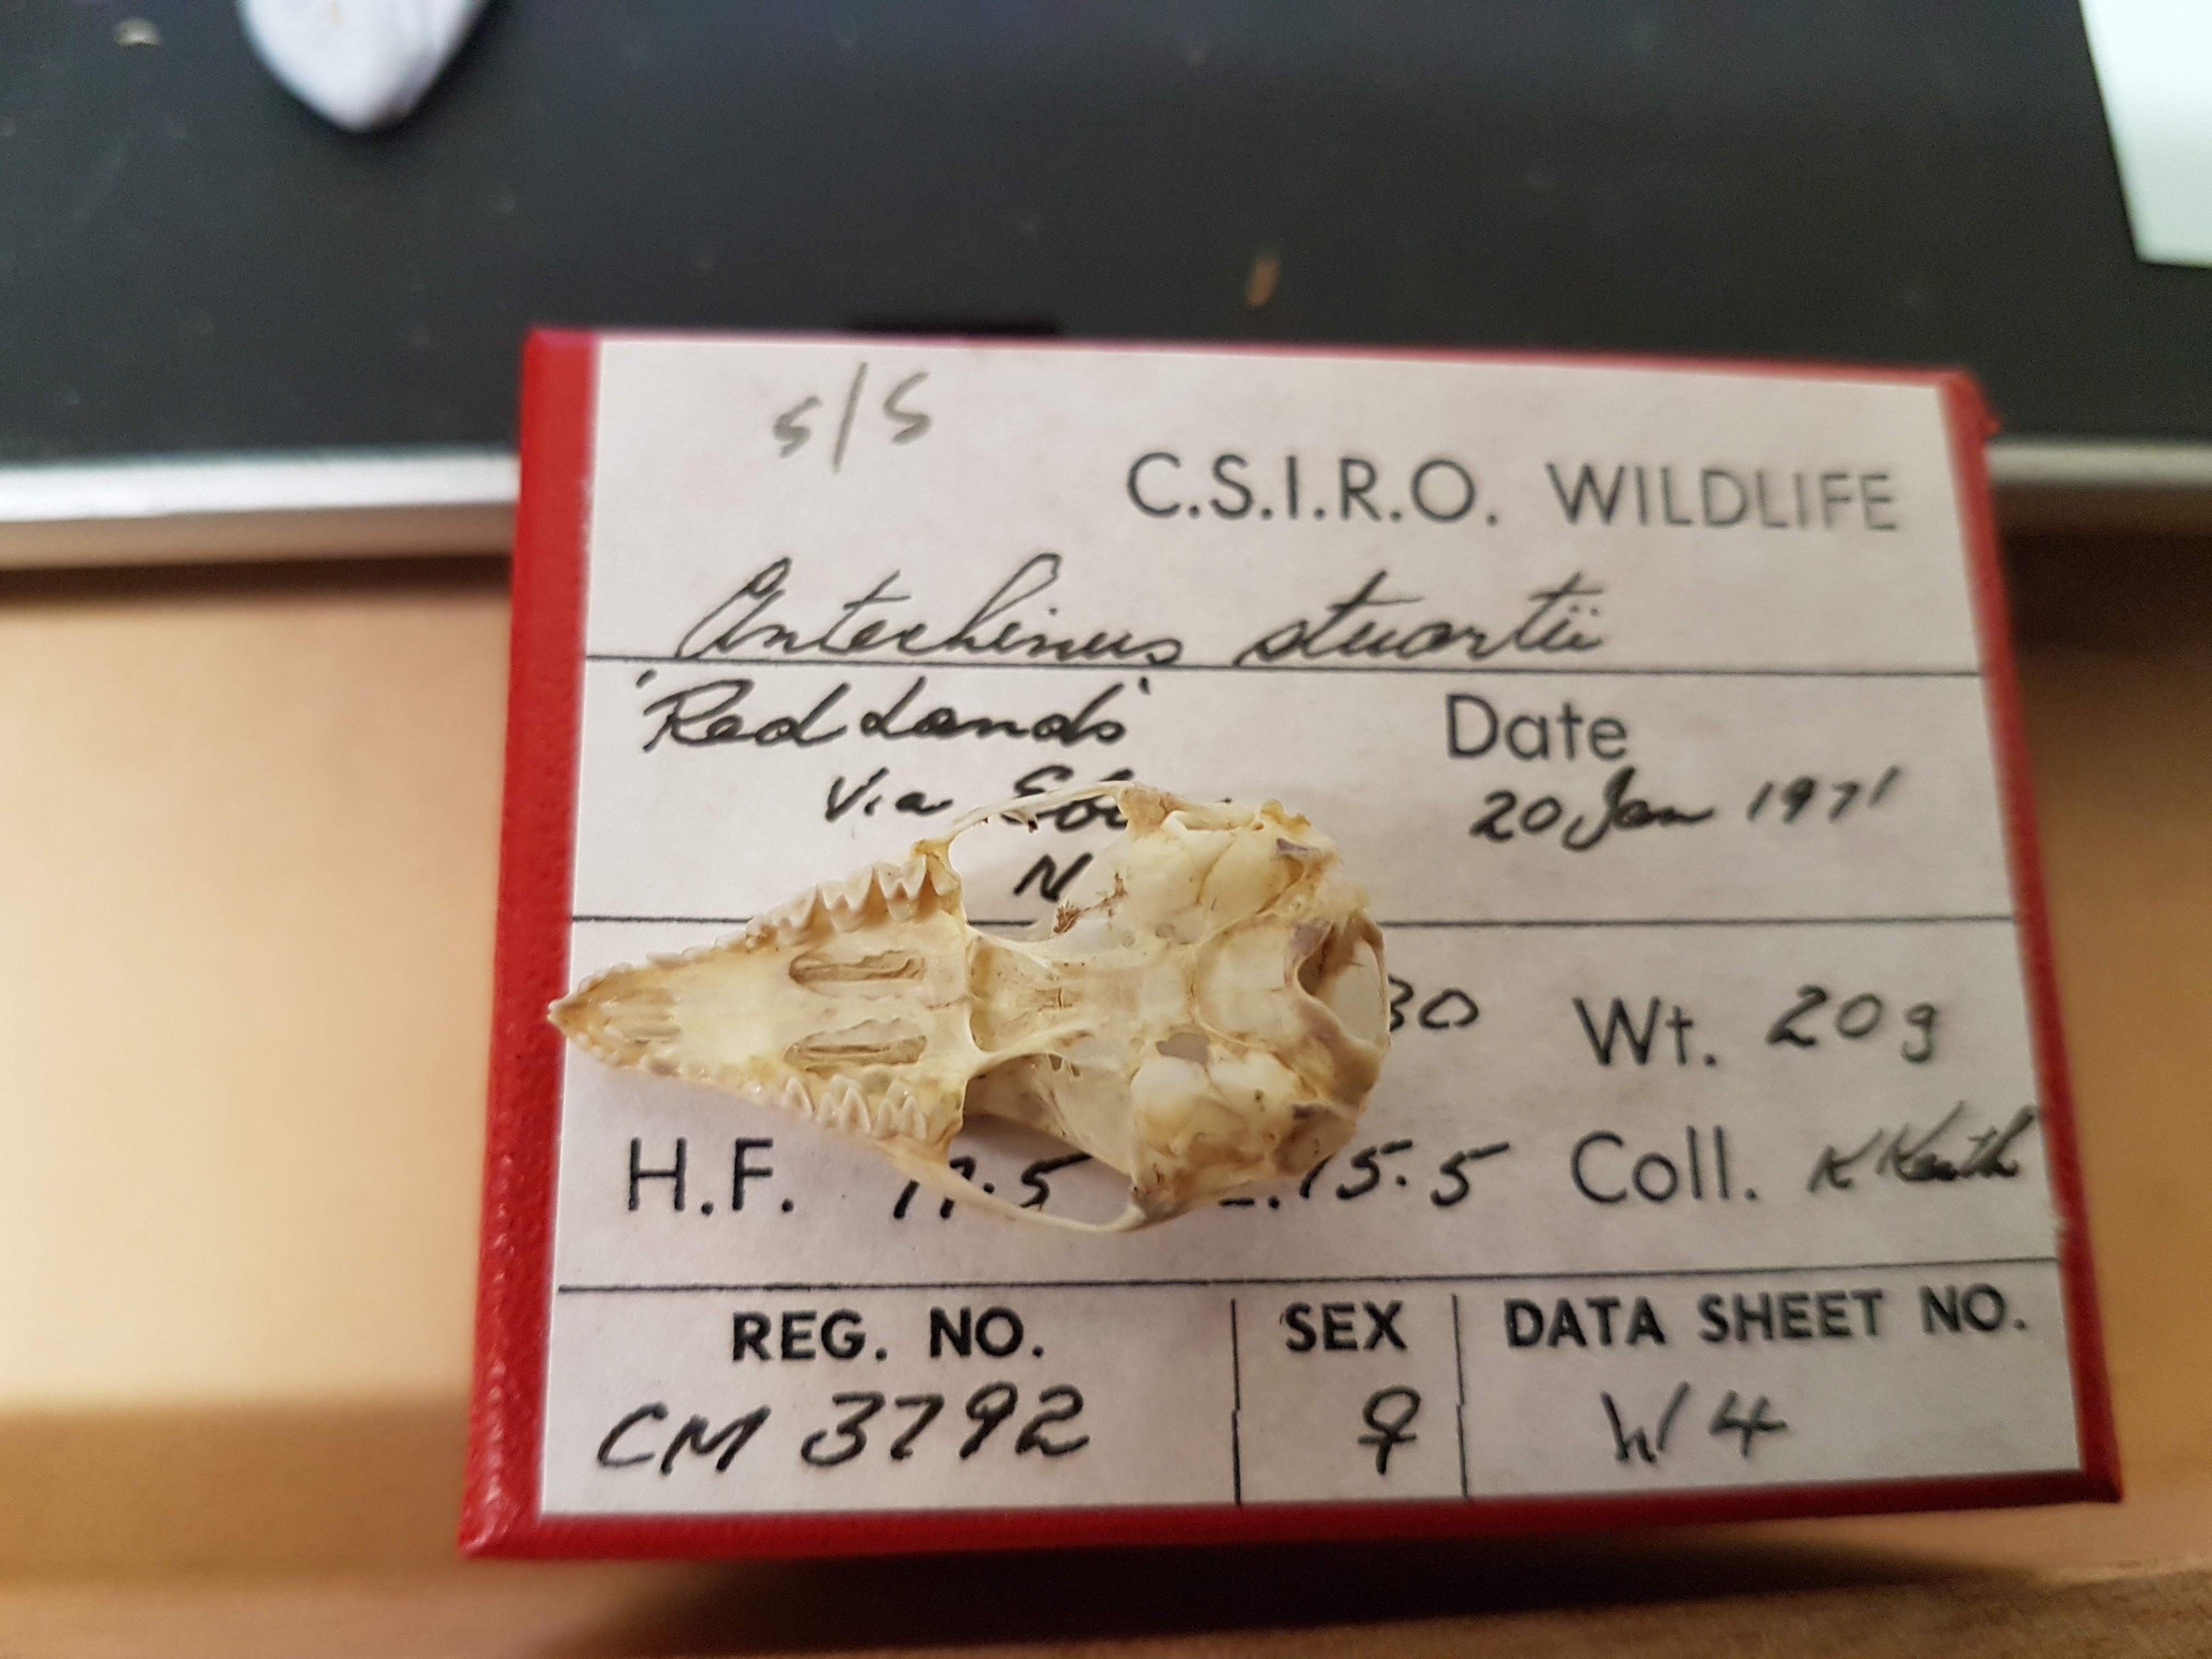 s/s
C.S.I.R.O. WILDLIFE
Antechinus stuartii
'Red Lands'
Date
Via
20 Jan 1971
N
30 Wt. 20g
H.F. 17.5 .15.5 Coll. K Keith
REG. NO. SEX DATA SHEET NO.
CM 3792 ♀ W4